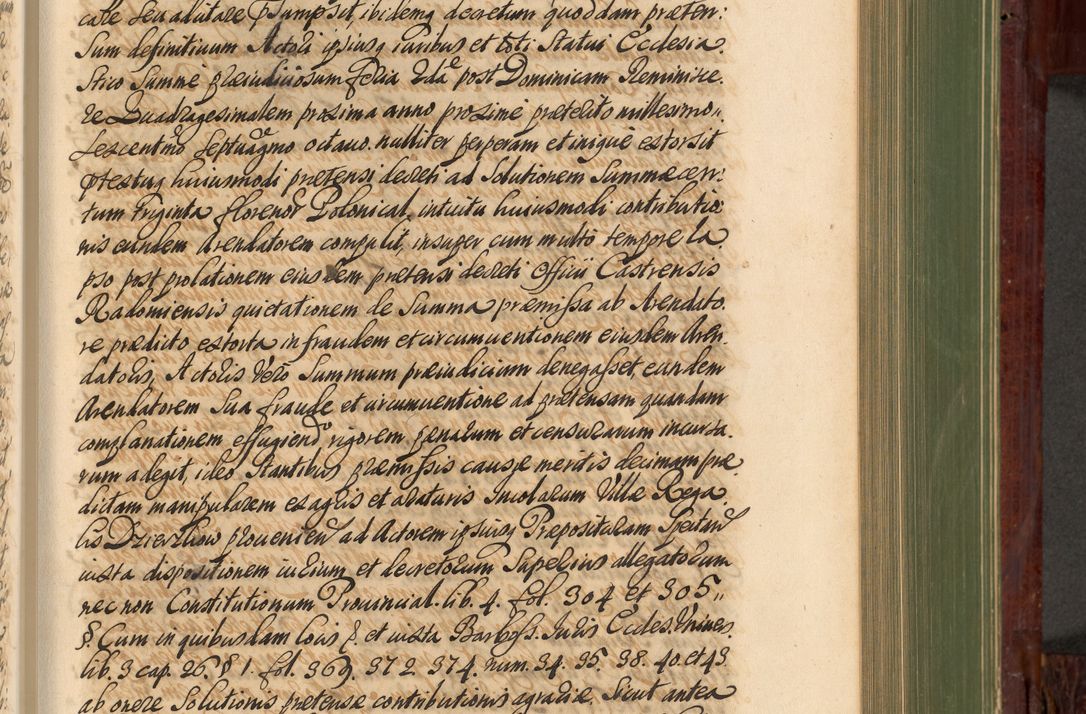 care seu aditare præsumpsit ibidemq decretum quoddam præten:
sum definitiuum Actori ipsiusq iuribus et toti Statui Ecclesia
stico Summe præiudiciosum Feria 2da post Dominicam Reminisce
re Quadragesimalem proxima anno proxime præterito millesimo
sexcentmo septuagmo octauo nulliter perperam et inique extorsit
prætextuq huiusmodi prætensi decreti ad solutionem Summæ cer:
tum triginta florenor Polonical. intuitu huiusmodi contributio
nis eundem Arendatorem compulit, insuper cum multo tempore la
pso post prolationem eiusdem prætensi decreti Officii Castrensis
Radomiensis quietationem de Summa præmissa ab Arendato
re prædicto extorta in fraudem et circumuentionem eiusdem Aren
datoris, Actoris vero Summum præiudicium denegasset, eundem
Arendatorem sua fraude et circumuentione ad prætensam quandam
complanationem effugiendo rigorem pænarum et censurarum incursa
rum adegit, ideo stantibus præmissis causæ meritis decimam præ
dictam manipularem ex agris et araturis Incolarum Villæ Rega
lis Dzierzkow prouenien ad Actorem ipsiusq Præposituram Spectan
iuxta dispositionem iurium et decretorum superius allegatorum
nec non Constitutionum Prouincial. lib. 4. fol. 304 et 305,,
§. Cum in quibusdam locis §. et iuxta Barboss. Iuris Eccles. Vniuers.
lib. 3 cap. 26. § 1. fol. 369. 372. 374. num. 34. 35. 38. 40. et 43
ab onere solutionis prætensæ contributionis agrariæ, sicut antea